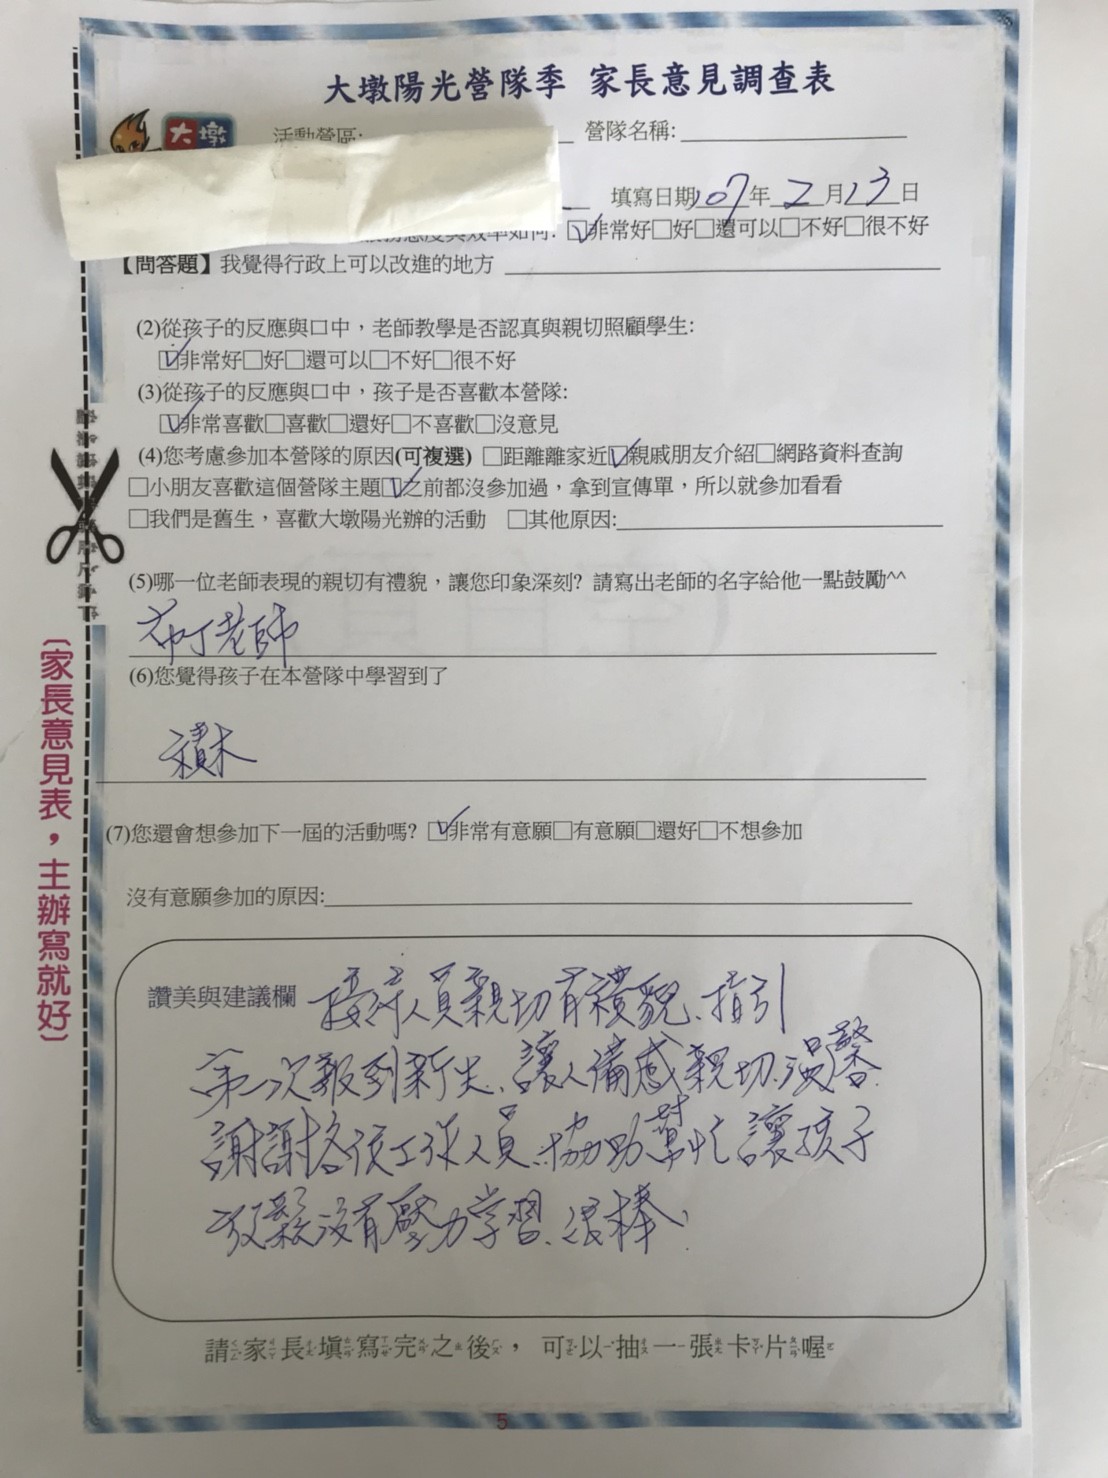 大墩陽光營隊季 家長意見調查表
大墩
活動營區: 營隊名稱:
填寫日期107年2月13日
如何: ☑非常好□好□還可以□不好□很不好
【問答題】我覺得行政上可以改進的地方
(2)從孩子的反應與口中，老師教學是否認真與親切照顧學生:
☑非常好□好□還可以□不好□很不好
(3)從孩子的反應與口中，孩子是否喜歡本營隊:
☑非常喜歡□喜歡□還好□不喜歡□沒意見
(4)您考慮參加本營隊的原因(可複選) □距離離家近☑親戚朋友介紹□網路資料查詢
□小朋友喜歡這個營隊主題☑之前都沒參加過，拿到宣傳單，所以就參加看看
□我們是舊生，喜歡大墩陽光辦的活動 □其他原因:
(5)哪一位老師表現的親切有禮貌，讓您印象深刻? 請寫出老師的名字給他一點鼓勵^^
布丁老師
(6)您覺得孩子在本營隊中學習到了
積木
(7)您還會想參加下一屆的活動嗎? ☑非常有意願□有意願□還好□不想參加
沒有意願參加的原因:
讚美與建議欄 接待人員親切有禮貌、指引
第一次報到新生、讓人備感親切、溫馨
謝謝各位工作人員、協助幫忙讓孩子
放鬆沒有壓力學習、很棒、
請家長填寫完之後，可以抽一張卡片喔
〔家長意見表，主辦寫就好〕
5